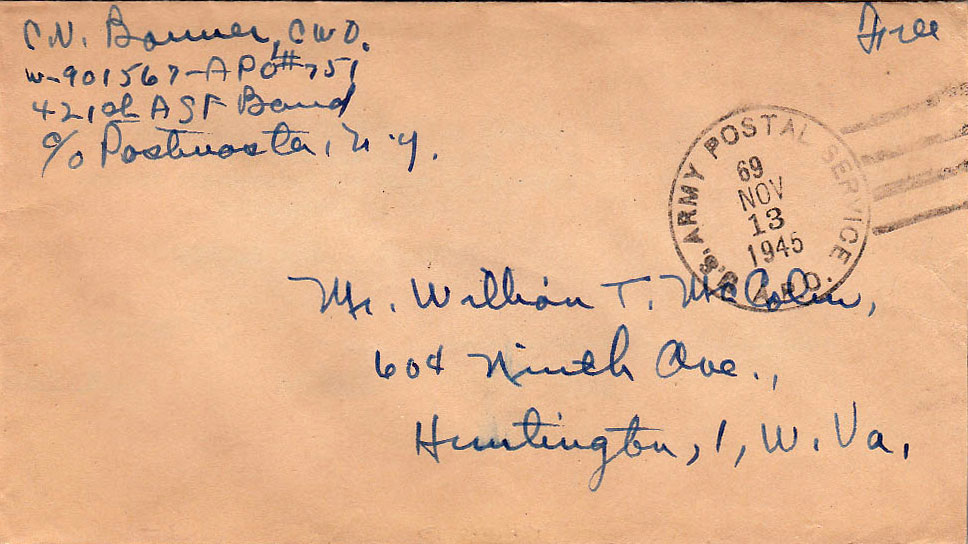 C.N. Bonner, CWO.
W-901567-APO #751
421st ASF Band
c/o Postmaster, N.Y.
Free
U.S. ARMY POSTAL SERVICE
69
NOV
13
1945
A.P.O.
Mr. William T. McColm,
604 Ninth Ave.,
Huntington, 1, W. Va.